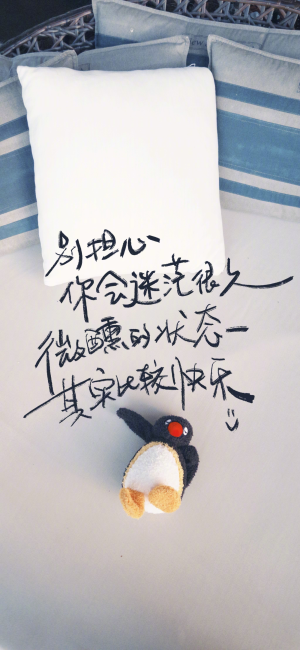 别担心
你会迷茫很久
微醺的状态
其实比较快乐